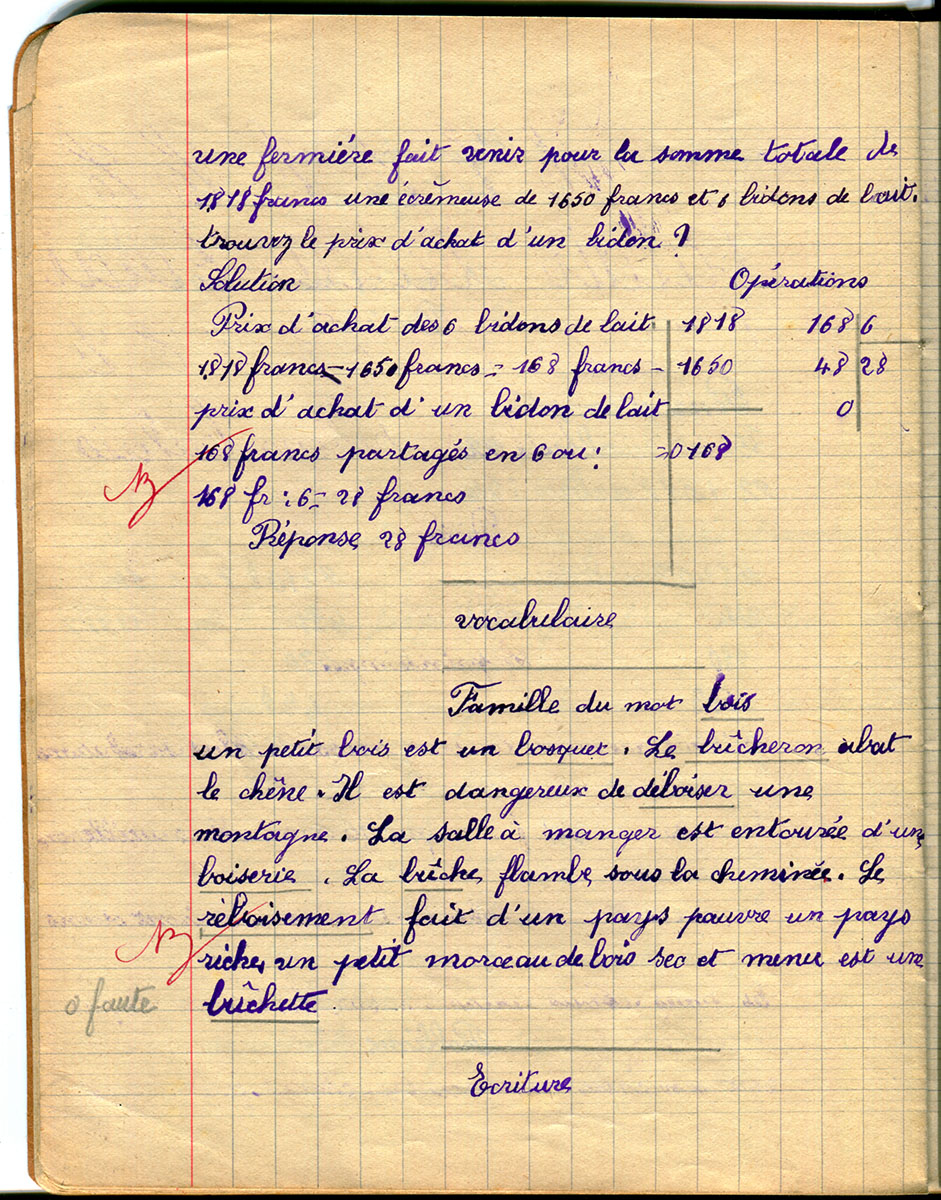 une fermiére fait venir pour la somme totale de
1818 francs une écrêmeuse de 1650 francs et 6 bidons de lait.
trouvez le prix d'achat d'un bidon ?
Solution Opérations
Prix d'achat des 6 bidons de lait 1818 168 6
1818 francs - 1650 francs = 168 francs - 1650 48 28
prix d'achat d'un bidon de lait 0
168 francs partagés en 6 ou : =0168
168 fr : 6 = 28 francs
Réponse 28 francs
vocabulaire
Famille du mot bois
un petit bois est un bosquet. Le bûcheron abat
le chêne. Il est dangereux de déboiser une
montagne. La salle à manger est entourée d'une
boiserie. La bûche flambe sous la cheminée. Le
réboisement fait d'un pays pauvre un pays
riche, un petit morceau de bois sec et menu est une
0 faute bûchette.
Ecriture